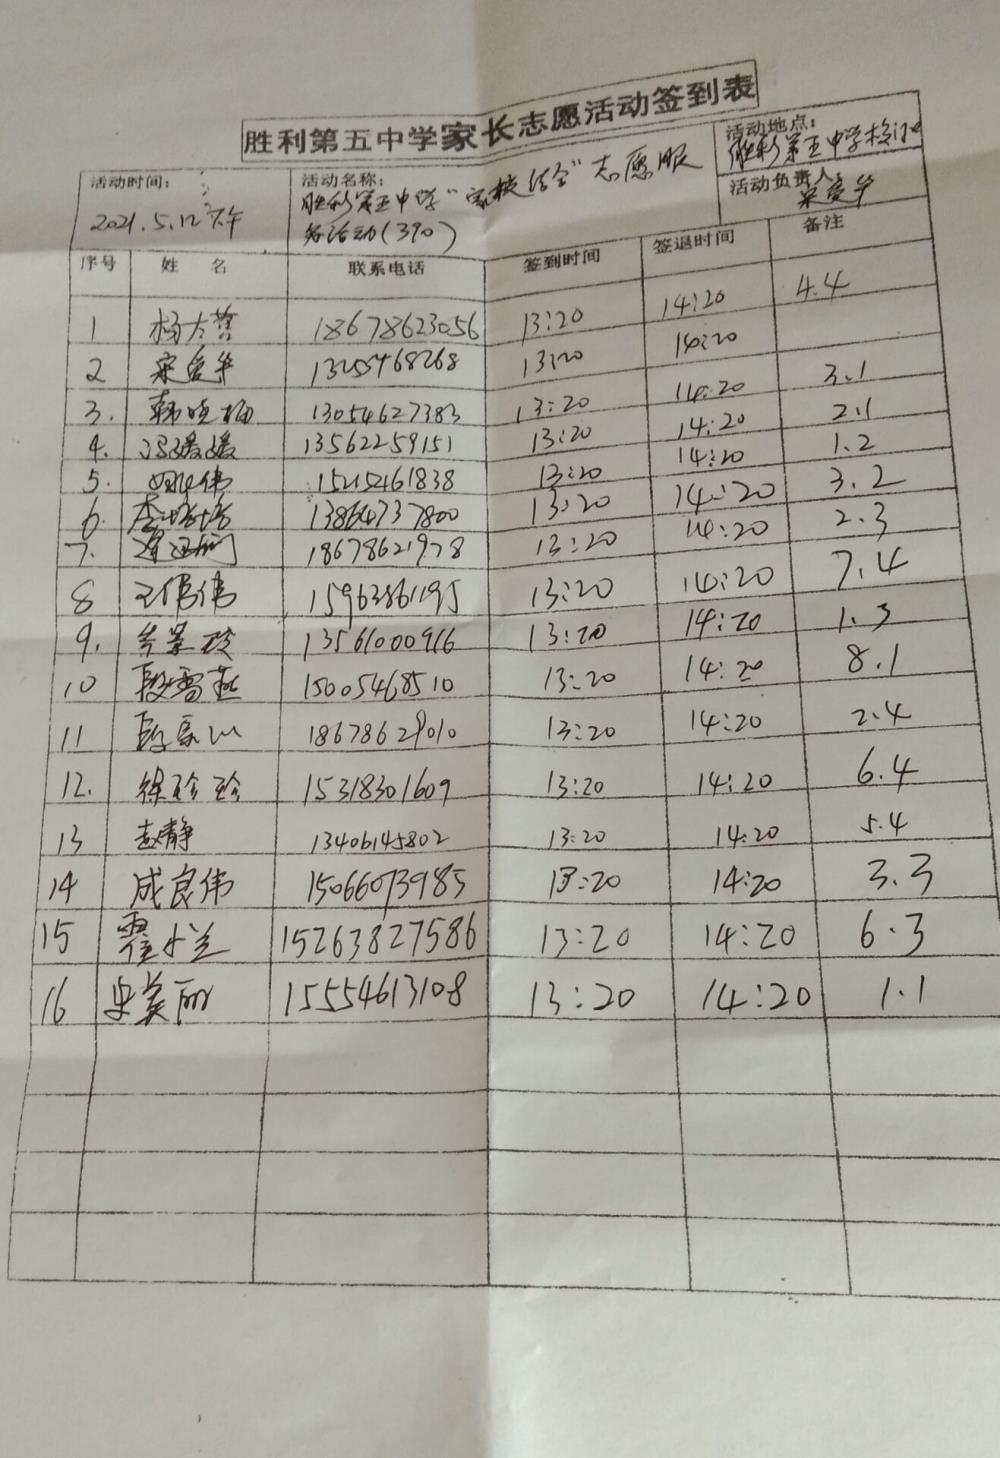 胜利第五中学家长志愿活动签到表
活动时间：
2021.5.12下午
活动名称：
胜利第五中学“家校结合”志愿服
务活动(390)
活动地点：
胜利第五中学校门口
活动负责人
宋爱华
序号 姓 名 联系电话 签到时间 签退时间 备注
1 18678623056 13:20 14:20 4.4
2 宋爱华 13255468268 13:20 14:20
3. 韩晓梅 13054627383 13:20 14:20 3.1
4. 冯媛媛 13562259151 13:20 14:20 2.1
5. 15252461838 13:20 14:20 1.2
6 李培培 13864737800 13:20 14:20 3.2
7. 18678621978 13:20 14:20 2.3
8 王伟伟 15963861195 13:20 14:20 7.4
9. 13561000916 13:20 14:20 1.3
10 段雪燕 15005468510 13:20 14:20 8.1
11 18678629010 13:20 14:20 2.4
12. 徐珍珍 15318301609 13:20 14:20 6.4
13 赵静 13406145802 13:20 14:20 5.4
14 成良伟 15066073985 13:20 14:20 3.3
15 霍小兰 15263827586 13:20 14:20 6.3
16 史美丽 15554613108 13:20 14:20 1.1